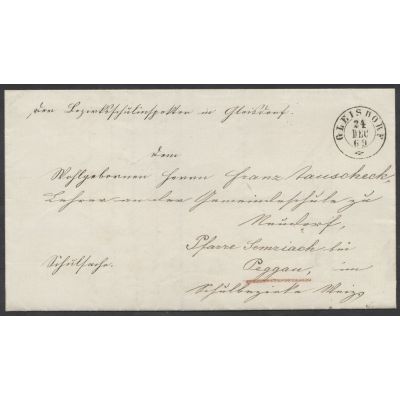 Der Bezirksschulinspektor in Gleisdorf.
GLEISDORF
24
DEC
69
dem
Wohlgebornen Herrn Franz Tauscheck
Lehrer an der Gemeindeschule zu
Neudorf,
Pfarre Semriach bei
Schulsache.
Peggau, im
Schulbezirke Weiz